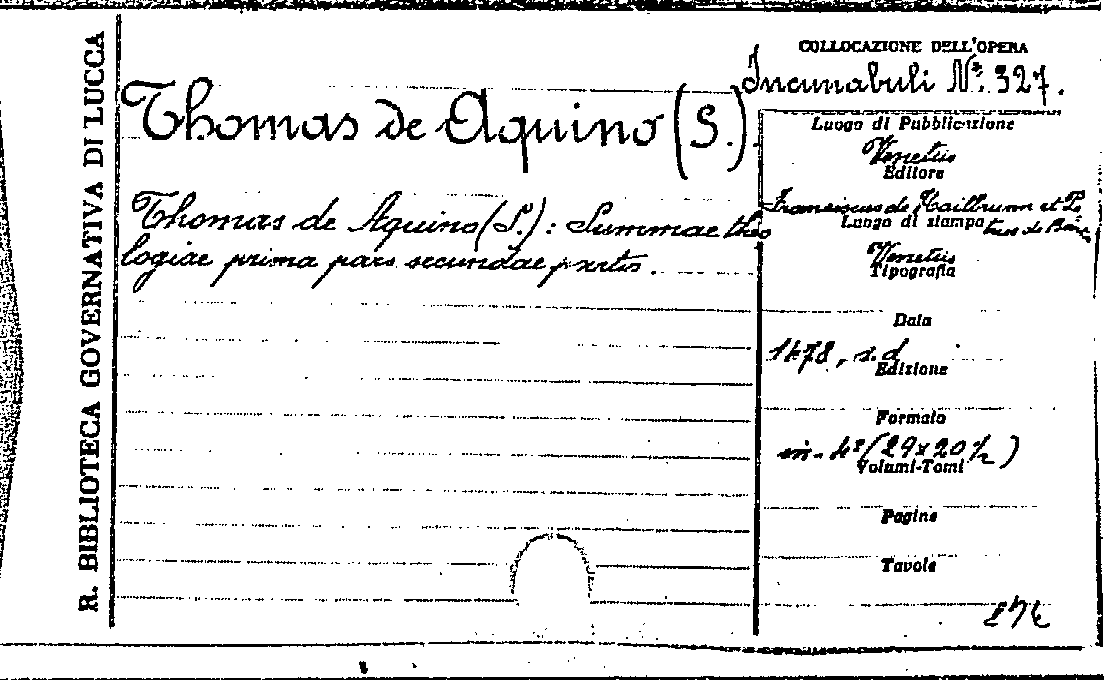 R. BIBLIOTECA GOVERNATIVA DI LUCCA
COLLOCAZIONE DELL'OPERA
Incunabuli N.º 327.
Thomas de Aquino (S.).
Thomas de Aquino (S.): Summae theo
logiae prima pars secundae partis.
Luogo di Pubblicazione
Venetiis
Editore
Franciscus de Hailbrunn et Pe
trus de
Luogo di stampa
Venetiis
Tipografia
Data
1478, s.d
Edizione
Formato
in-4º (29x20½)
Volumi-Tomi
Pagine
Tavole